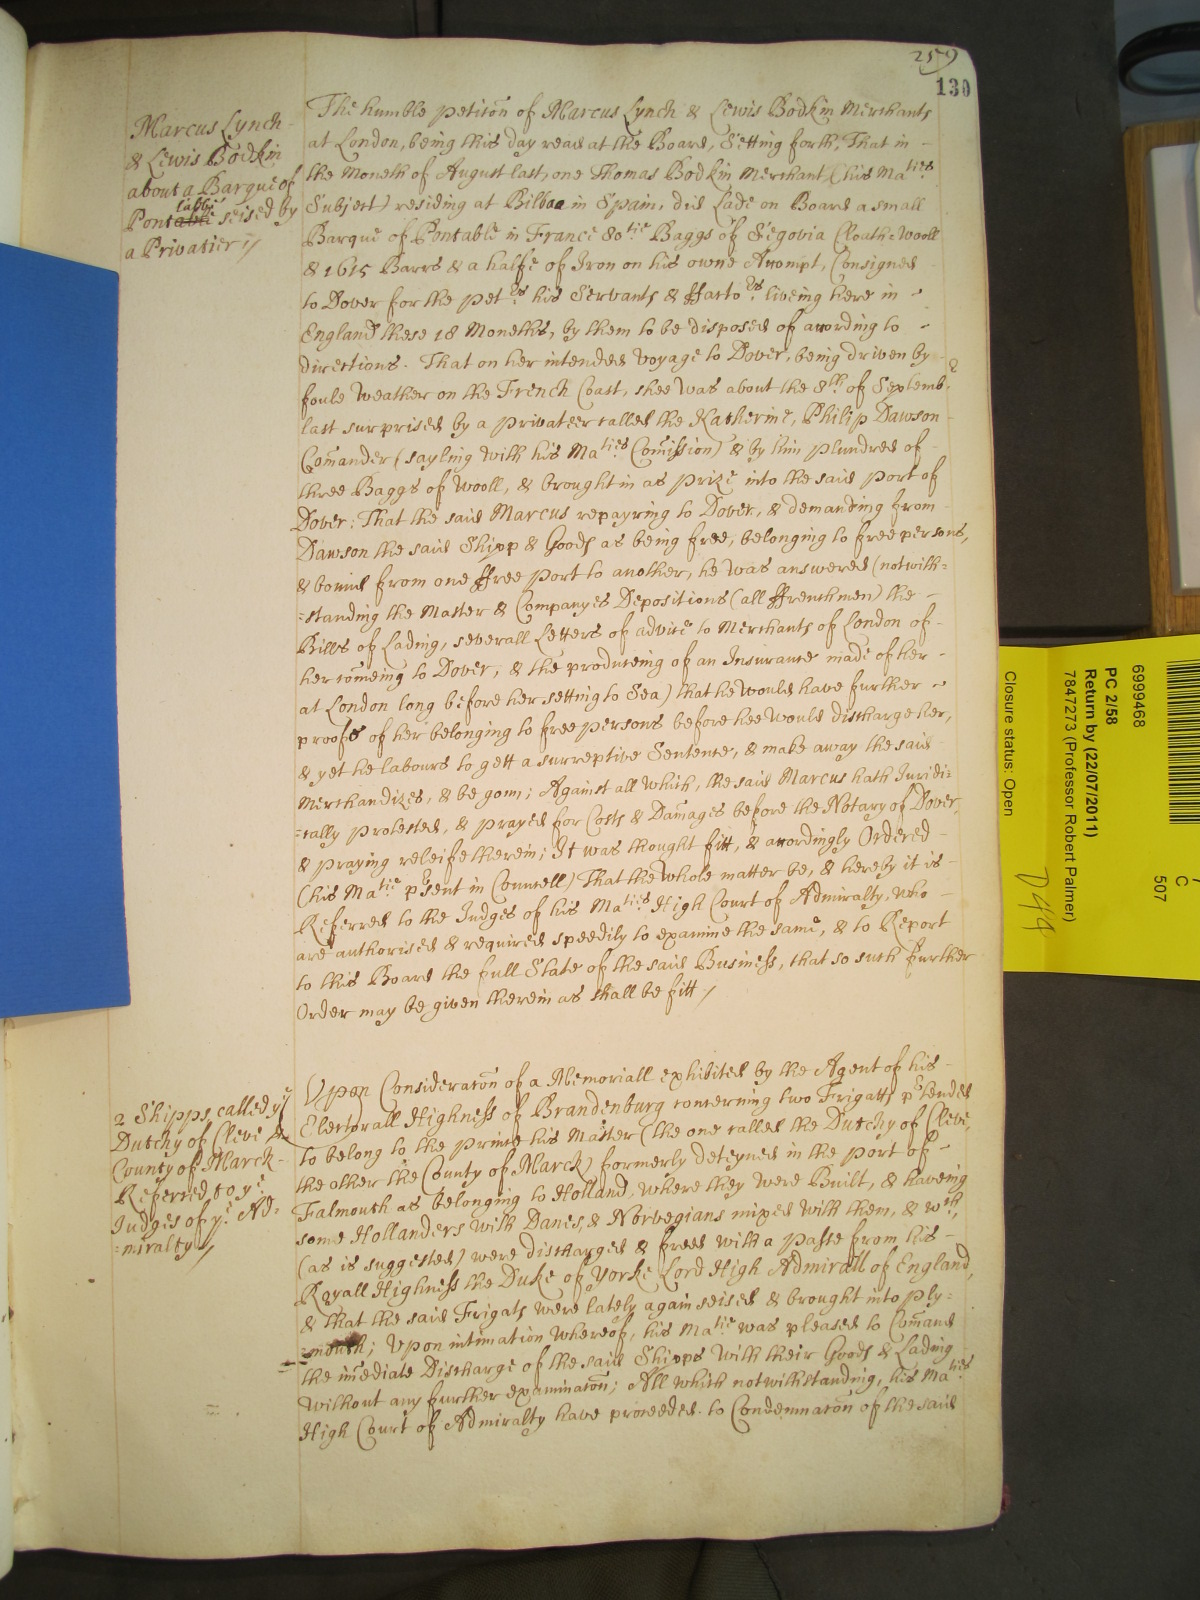 259
130
Marcus Lynch
& Lewis Bodkin
about a Barque of
labbe
Pontable seised by
a Privatier //
The humble peticōn of Marcus Lynch & Lewis Bodkin Merchants
at London, being this day read at the Board, Setting forth, That in -
the Moneth of August last, one Thomas Bodkin Merchant (his Maties
Subject) residing at Bilboa in Spain, did Lade on Board a small
Barque of Pontable in France 80tie Baggs of Segovia Cloath-Wooll
& 1615 Barrs & a halfe of Iron on his owne Accompt, Consigned
to Dover for the petrs his Servants & ffactors liveing here in -
England these 18 Moneths, by them to be disposed of according to -
directions. That on her intended voyage to Dover, being driven by
foule weather on the French Coast, shee was about the 8th of Septembr
last surprised by a privateer called the Katherine, Philip Dawson
Comander (sayling with his Maties Comission) & by him plundred of -
three Baggs of Wooll, & brought in as prize into the said port of
Dover; That the said Marcus repayring to Dover, & demanding from
Dawson the said Shipp & Goods as being free, belonging to free persons,
& bound from one ffree port to another, he was answered (notwith=
=standing the Master & Companyes Depositions (all ffrenchmen) the -
Bills of Lading, severall Letters of advice to Merchants of London of -
her comeing to Dover, & the produceing of an Insurance made of her -
at London long before her setting to Sea) that he would have further -
proofes of her belonging to free persons before hee would discharge her,
& yet he labours to gett a surreptive Sentence, & make away the said
Merchandizes, & be gone; Against all which, the said Marcus hath Juridi=
=cally protested, & prayed for Costs & Damages before the Notary of Dover,
& praying releife therein; It was thought fitt, & accordingly Ordered -
(his Matie prsent in Councell) That the whole matter be, & hereby it is -
Referred to the Judges of his Maties High Court of Admiralty, who -
are authorised & required speedily to examine the same, & to Report
to this Board the full State of the said Business, that so such further
Order may be given therein as shall be fitt /
2 Shipps called ye
Dutchy of Cleve &
County of Marck -
Referred to ye
Judges of ye Ad=
=miralty //
Upon Consideracōn of a Memoriall exhibited by the Agent of his -
Electorall Highness of Brandenburg concerning two Frigatts prtended
to belong to the prince his Master (the one called the Dutchy of Cleve,
the other the County of Marck) formerly deteyned in the port of -
Falmouth as belonging to Holland, where they were Built, & haveing
some Hollanders with Danes, & Norvegians mixed with them, & wch,
(as is suggested) were discharged & freed with a passe from his -
Royall Highness the Duke of Yorke Lord High Admirall of England,
& that the said Frigats were lately again seised & brought into Ply=
=mouth; Upon intimation whereof, his Matie was pleased to Comand
the imediate Discharge of the said Shipps with their Goods & Lading
without any further examinatōn; All which notwithstanding, his Maties
High Court of Admiralty have proceeded to Condemnatōn of the said
6999468
PC 2/58
Return by (22/07/2011)
7847273 (Professor Robert Palmer)
Closure status: Open
C
507